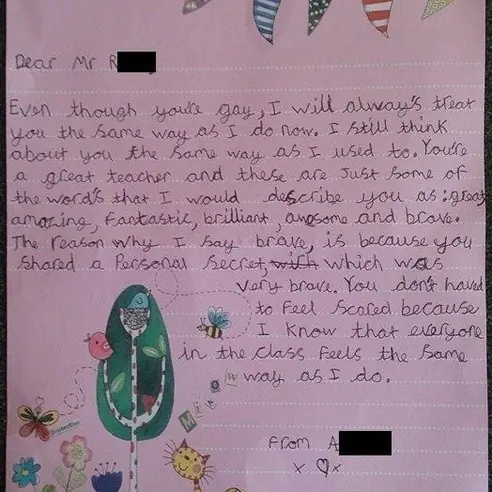 Dear Mr R
Even though you're gay, I will always treat
you the same way as I do now. I still think
about you the same way as I used to. You're
a great teacher and these are just some of
the word's that I would describe you as: great,
amazing, fantastic, brilliant, awesome and brave.
The reason why I say brave, is because you
shared a Personal secret, with which was
very brave. You don't have
to feel scared because
I know that everyone
in the class feels the same
way as I do.
From A
x ♡ x